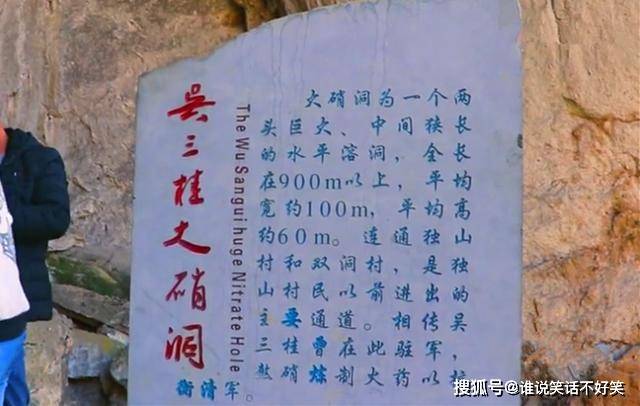 吳三桂大硝洞
The Wu Sangui huge Nitrate Hole
大硝洞为一个两
头巨大、中间狭长
的水平溶洞，全长
在900m以上，平均
宽约100m，平均高
约60m。连通独山
村和双洞村，是独
山村民以前进出的
主要通道。相传吴
三桂曾在此驻军，
熬硝炼制火药以
衡清军。
搜狐号@谁说笑话不好笑